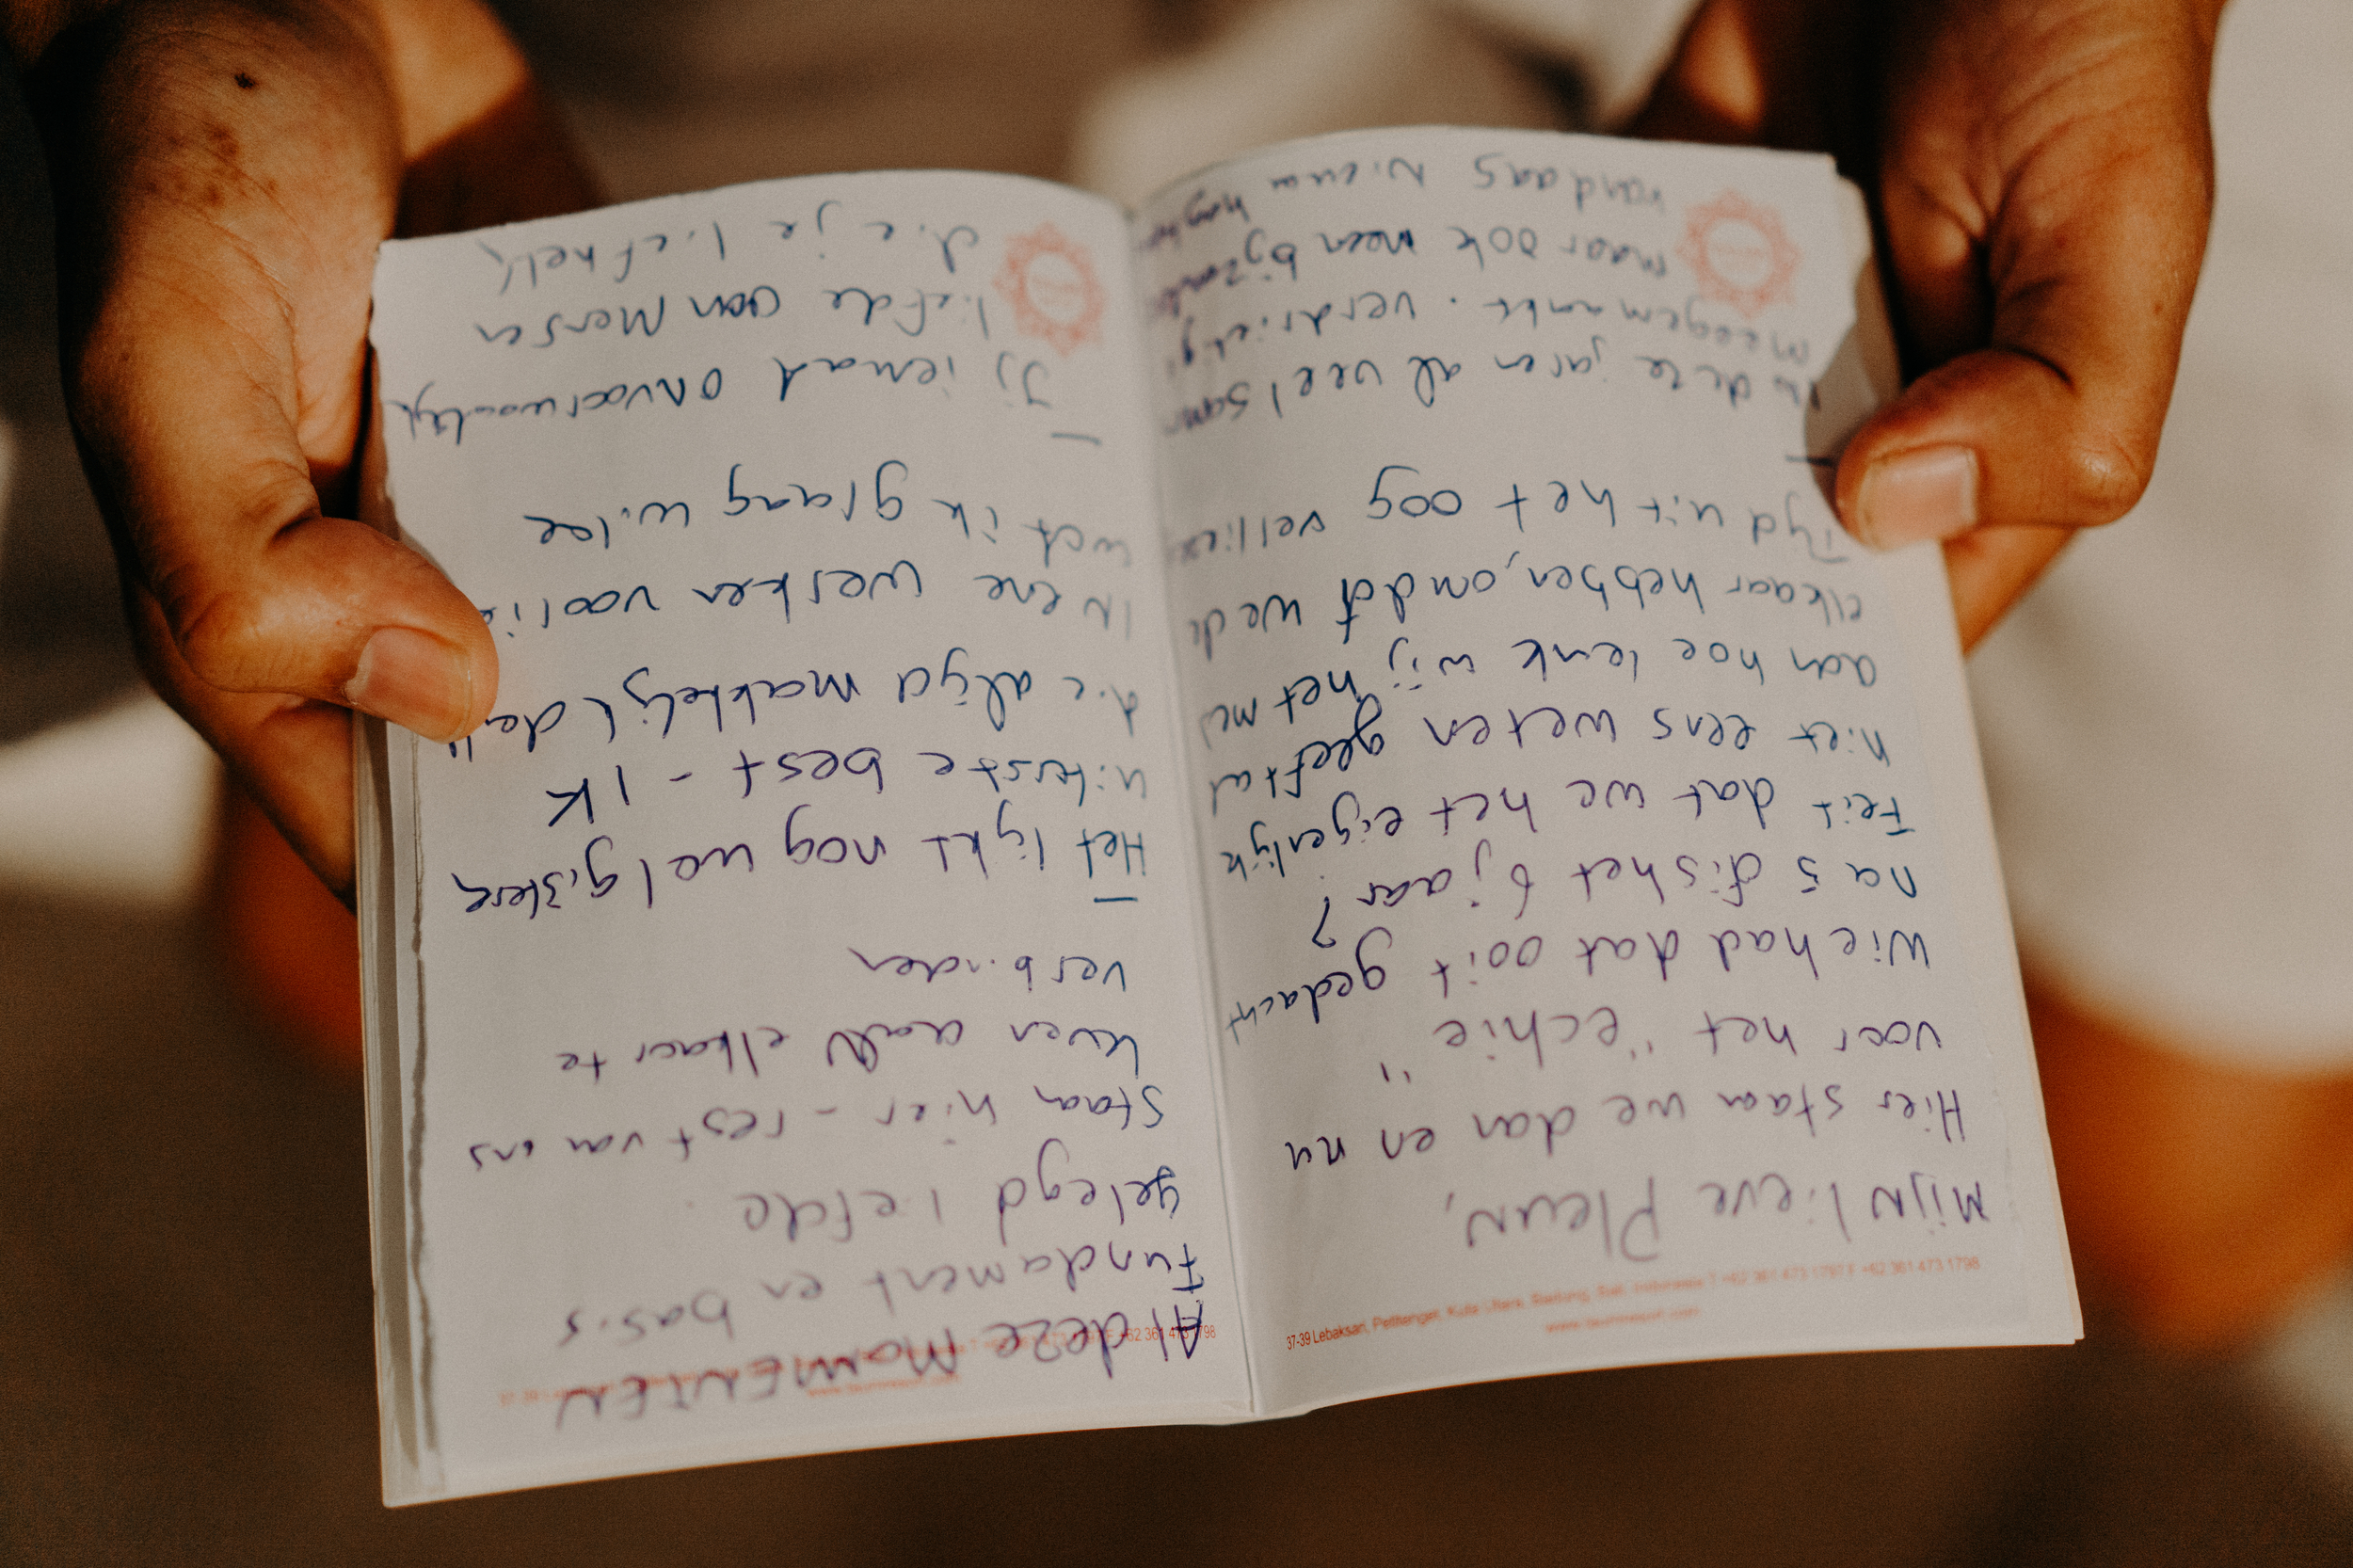 Mijn lieve Pleun,
Hier staan we dan en nu
voor het "echie"
Wie had dat ooit gedacht
na 5 of is het 6 jaar?
Feit dat we het eigenlijk
niet eens weten geeft al
aan hoe leuk wij het met
elkaar hebben, omdat we de
Tijd uit het oog
In deze jaren al veel
meegemaakt. verdrietig
maar ook
vandaag
37-39 Lebaksari, Petitenget, Kuta Utara, Badung, Bali, Indonesia T +62 361 473 1797 F +62 361 473 1798
Al deze MOMENTEN
Fundament en basis
gelegd liefde.
Staan hier - rest van ons
leven aan elkaar te
verbinden
—
Het lijkt nog wel gisteren
uiterste best - IK
die altijd makkelijk
werken
wat ik graag wilde
—
Jij iemand onvoorwaardelijk
liefde aan Mensen
die je liefhebt
+62 361 473 1798